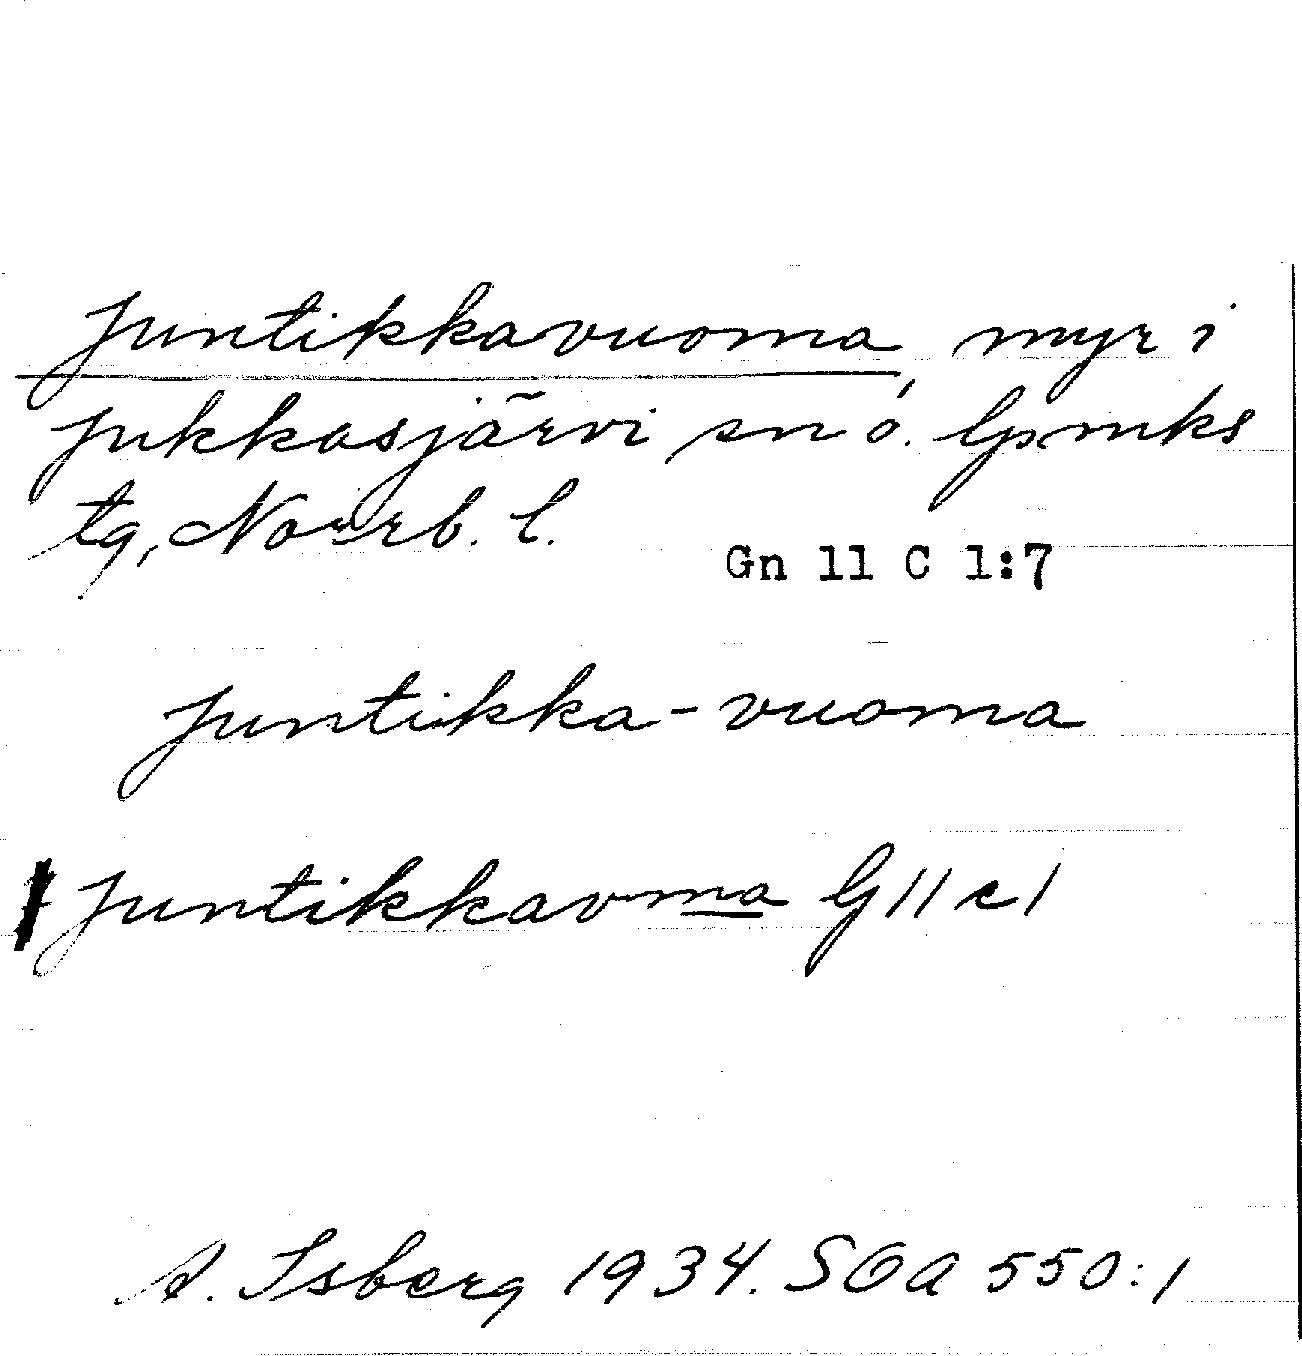 Juntikkavuoma, myr i
Jukkasjärvi sn o. lpmks
tg, Norrb. l.
Gn 11 C 1:7
Juntikka-vuoma
Juntikkavma G 11 c 1
A. Isberg 1934. SOA 550:1